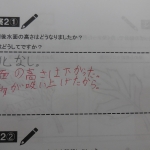 21
水面の高さはどうなりましたか？
どうしてですか？
なし。
面の高さは上がった。
が吸い上げたから。
22